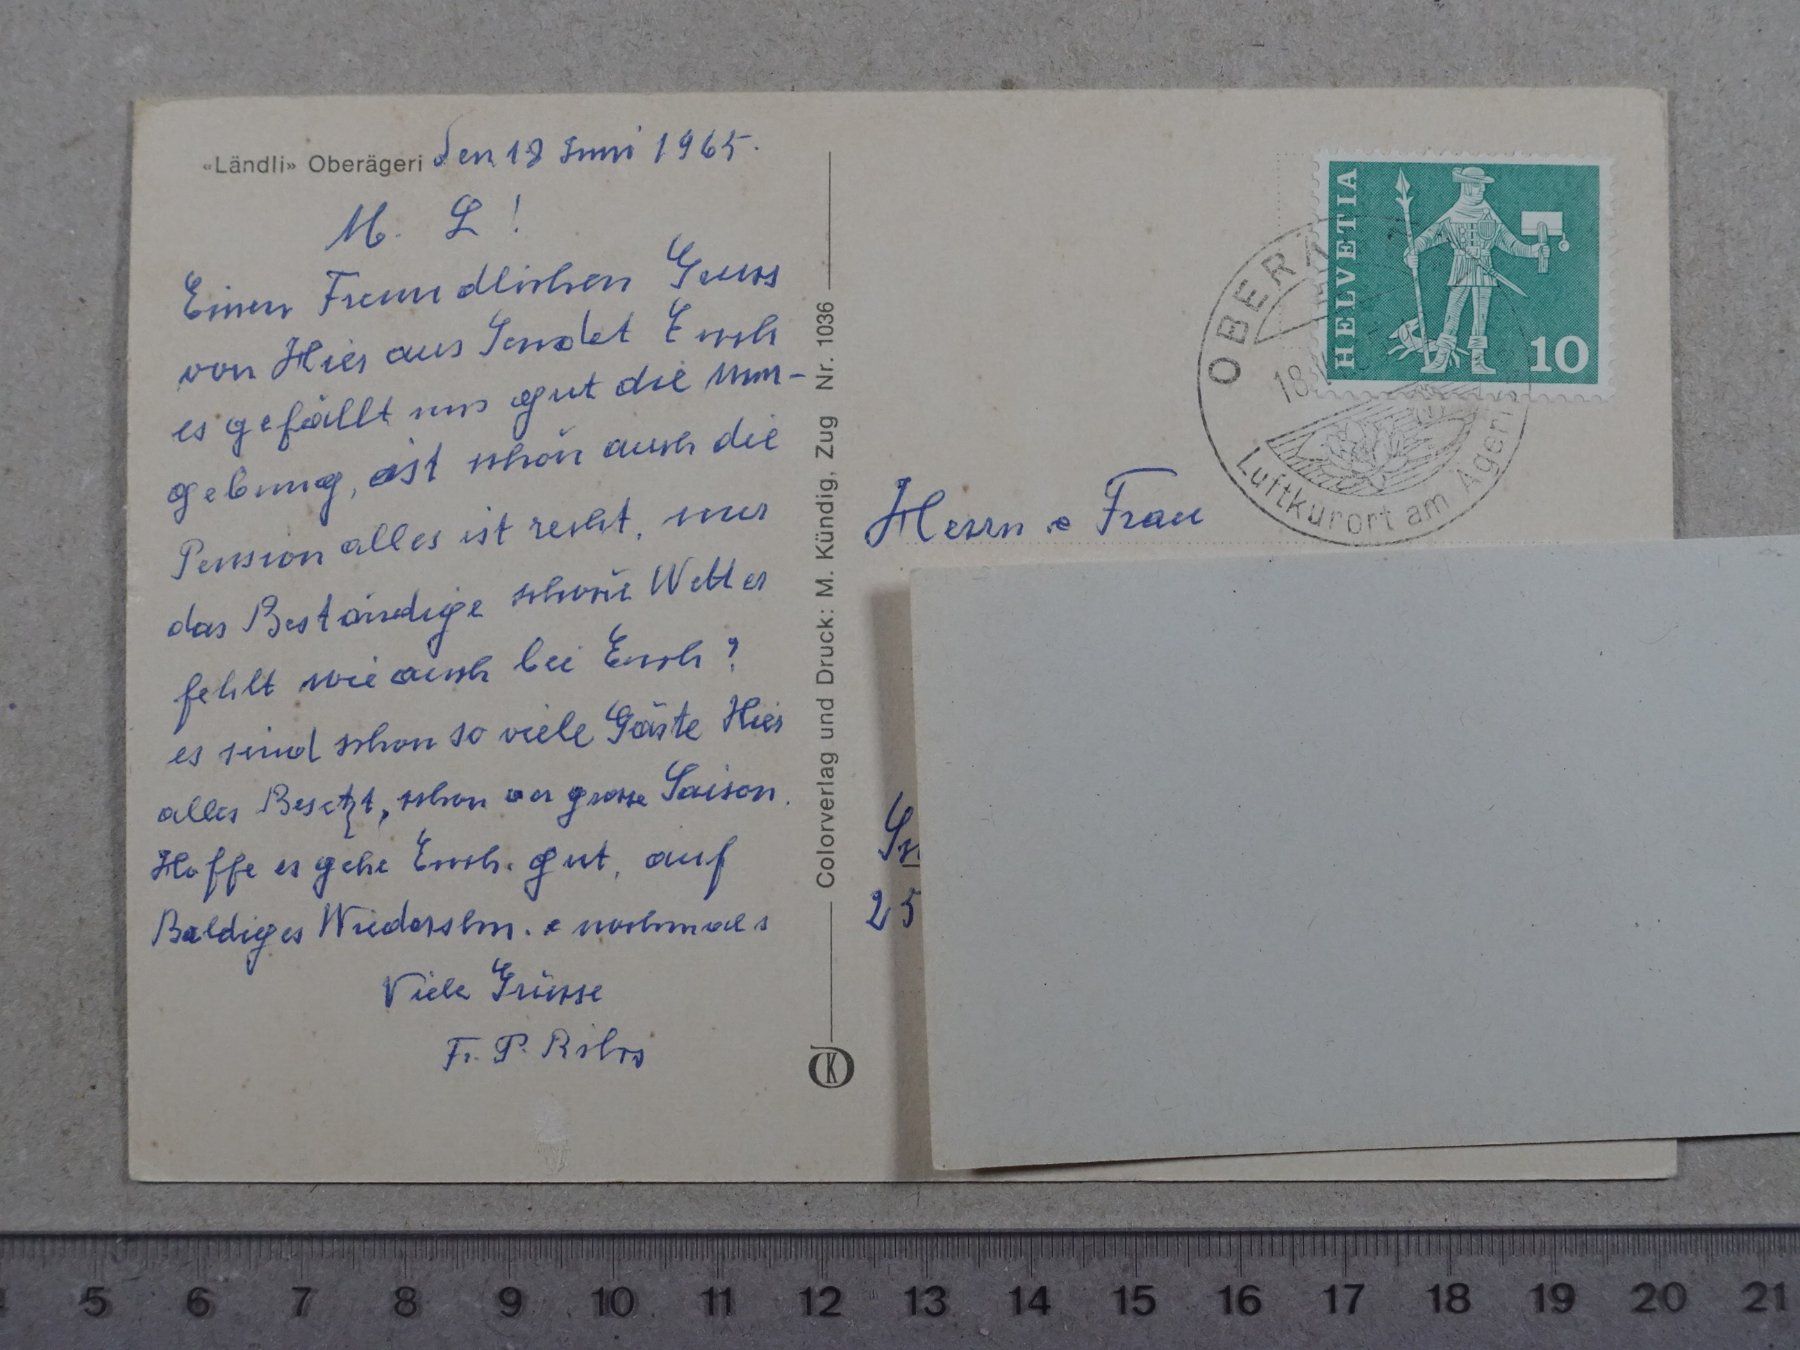 «Ländli» Oberägeri den 18 Juni 1965.
M. L!
Einen Freundlichen Gruss
von Hier aus Sendet Euch
es gefällt uns gut die Um-
gebung, ist schön auch die
Pension alles ist recht, nur
das Beständige schöne Wetter
fehlt wie auch bei Euch?
es sind schon so viele Gäste Hier
alles Besetzt, schon vor grosse Saison.
Hoffe es gehe Euch. gut, auf
Baldiges Wiedersehn. e nochmals
Viele Grüsse
Fr. P.
Colorverlag und Druck: M. Kündig, Zug Nr. 1036
K
HELVETIA
10
OBERÄ
18.
Luftkurort am Ägeri
Herrn e Frau
25